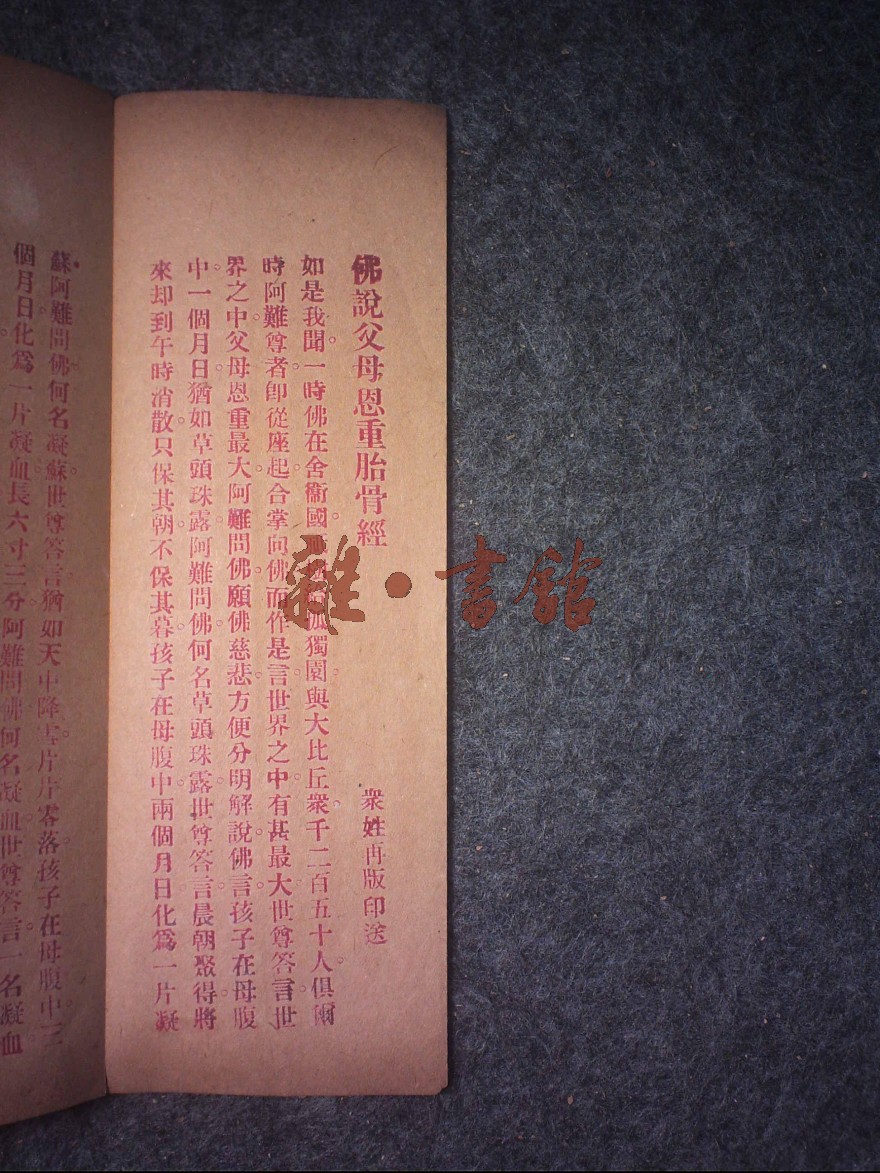 佛說父母恩重胎骨經
衆姓再版印送
如是我聞。一時佛在舍衞國。獨園。與大比丘衆。千二百五十人。俱爾
時阿難尊者。卽從座起。合掌向佛。而作是言。世界之中。有甚最大。世尊答言。世
界之中。父母恩重最大。阿難問佛。願佛慈悲。方便分明解說。佛言。孩子在母腹
中。一個月日。猶如草頭珠露。阿難問佛。何名草頭珠露。世尊答言。晨朝聚得。將
來却到午時消散。只保其朝。不保其暮。孩子在母腹中。兩個月日。化爲一片凝
蘇。阿難問佛。何名凝蘇。世尊答言。猶如天中降雪。片片零落。孩子在母腹中。三
個月日。化爲一片凝血。長六寸三分。阿難問佛。何名凝血。世尊答言。一名凝血
雜·書館